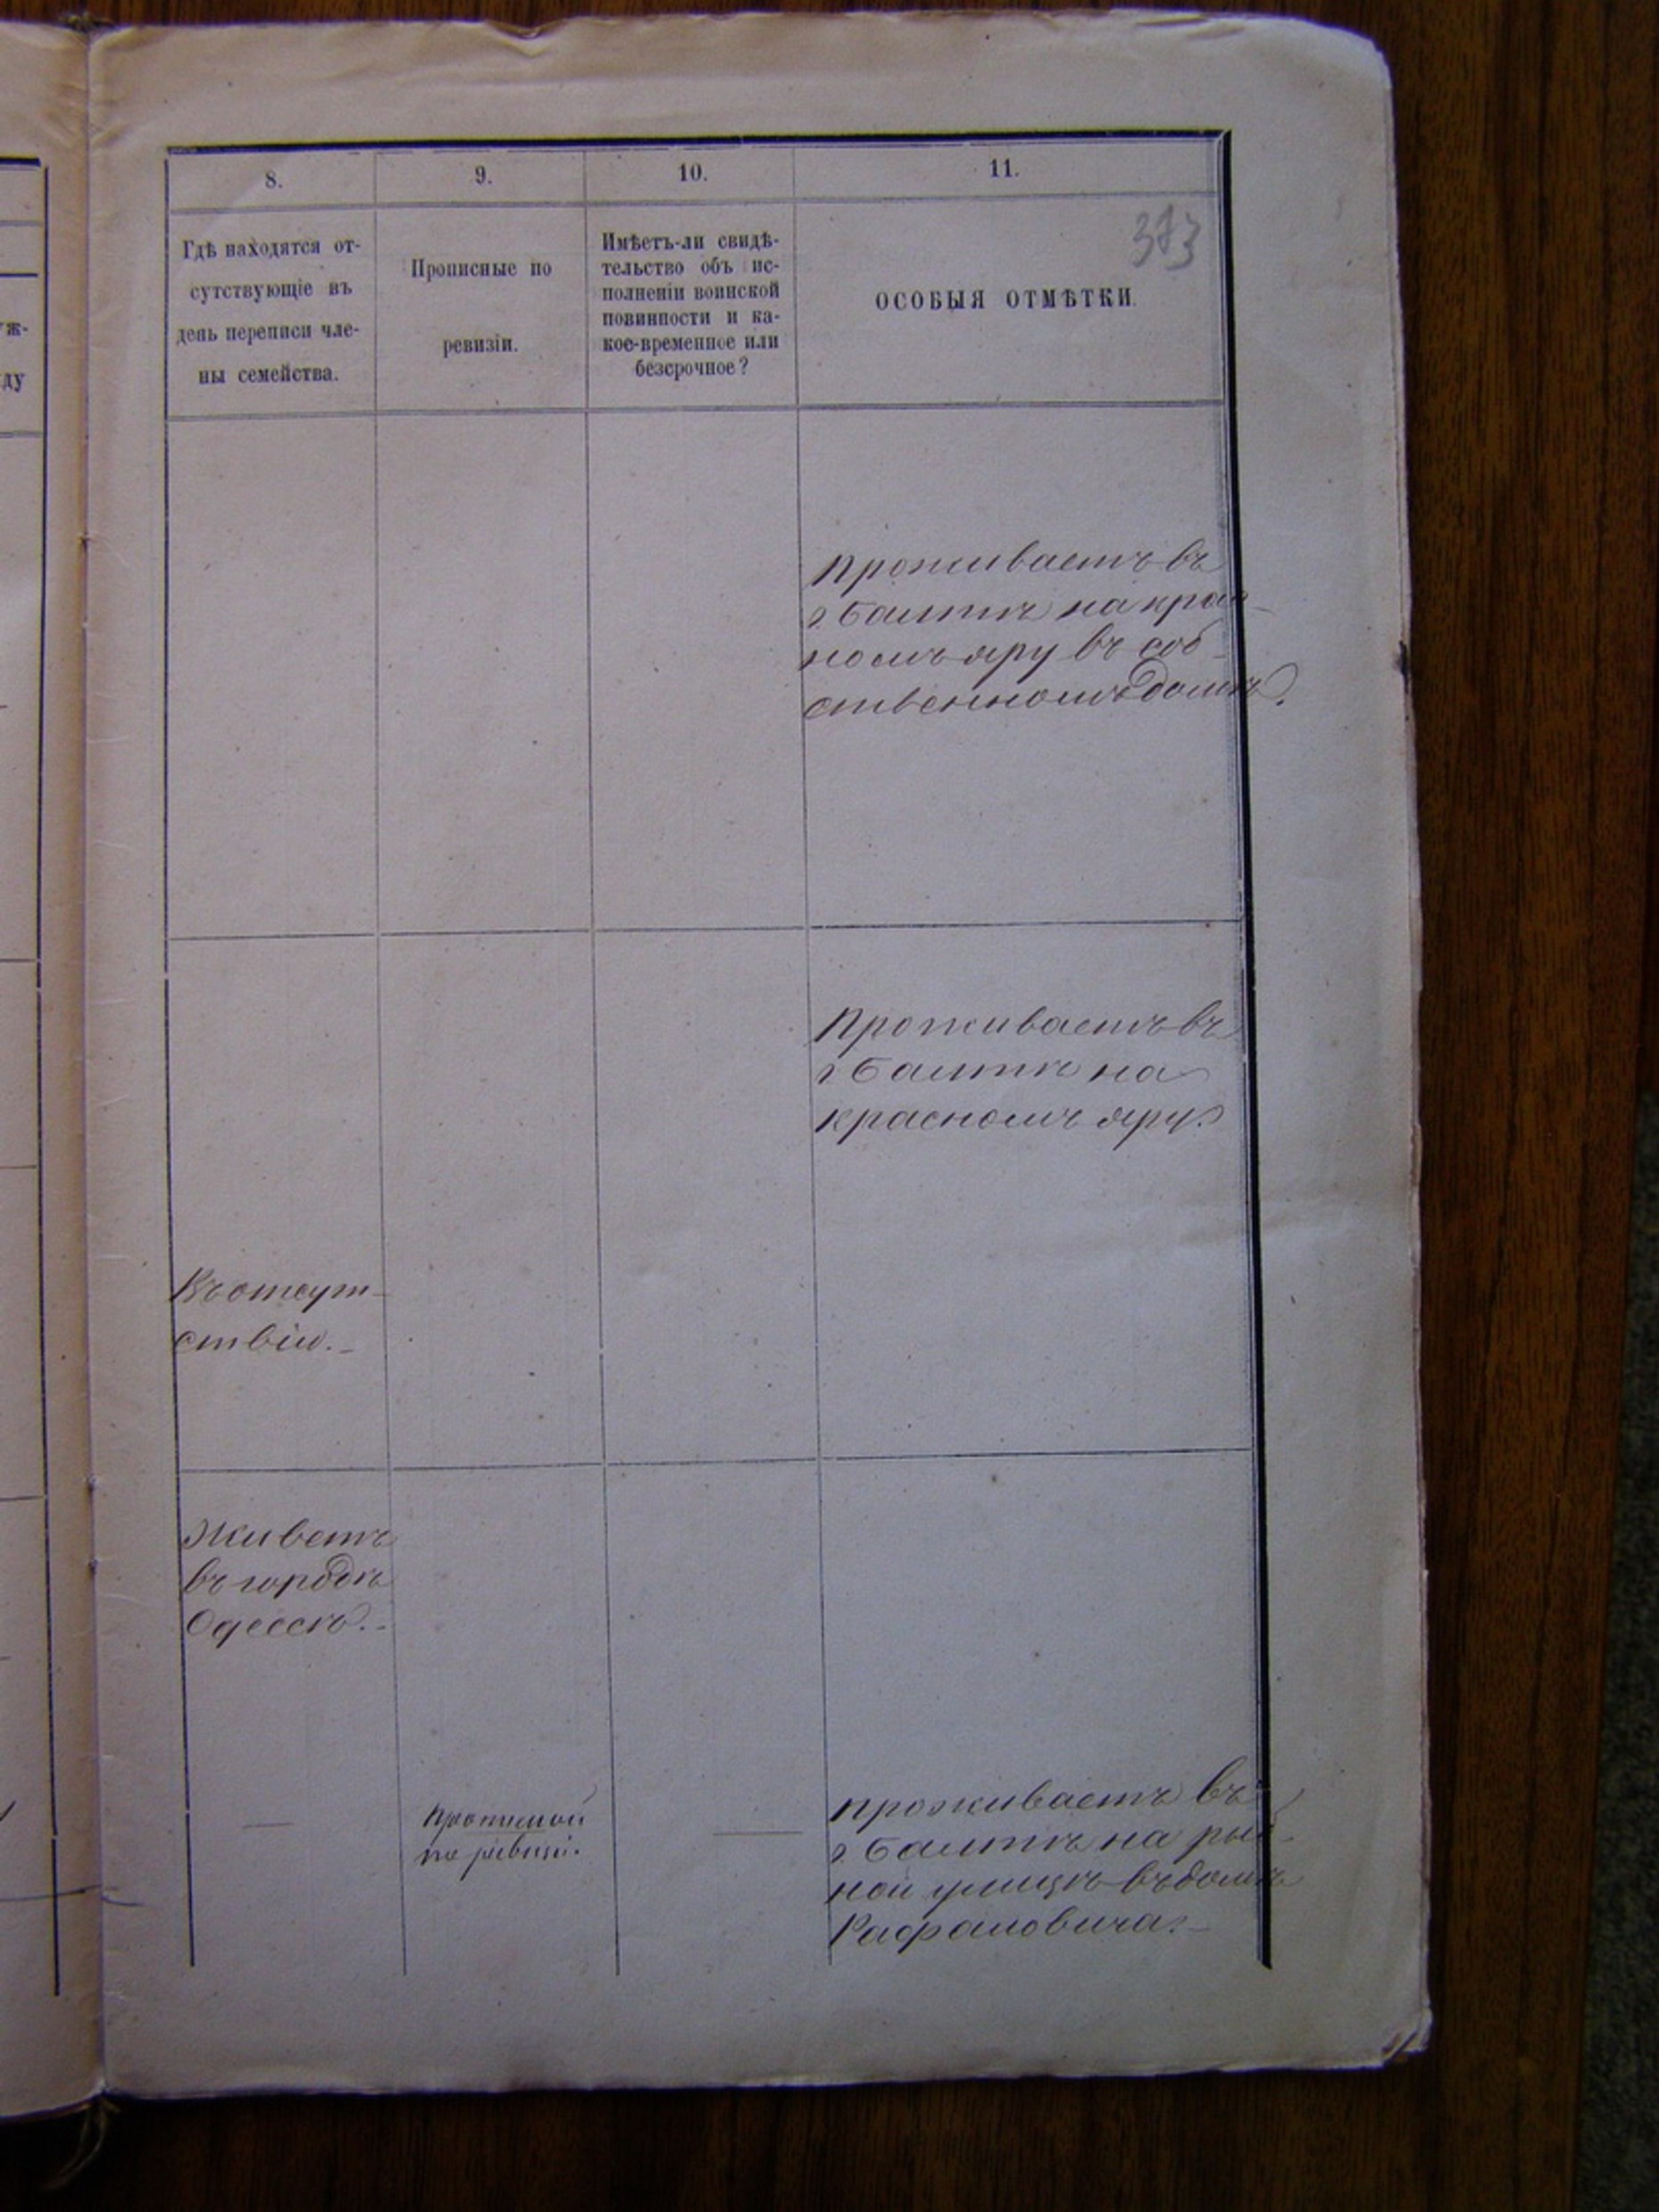 8.
Гдѣ находятся от-
сутствующіе въ
день переписи чле-
ны семейства.
9.
Прописные по
ревизіи.
10.
Имѣетъ-ли свидѣ-
тельство объ ис-
полненіи воинской
повинности и ка-
кое-временное или
безсрочное?
11.
373
ОСОБЫЯ ОТМѢТКИ.
уж-
ду
Проживаетъ въ
г. Балтѣ на крас-
номъ яру въ соб-
ственномъ домѣ.
Проживаетъ въ
г Балтѣ на
красномъ яру.
Въ отсут-
ствіи.
Живетъ
въ городѣ
Одессѣ.
—
Прописной
по ревизіи.
—
проживаетъ въ
г. Балтѣ на рыб-
ной улицѣ въ домѣ
Рафаловича.